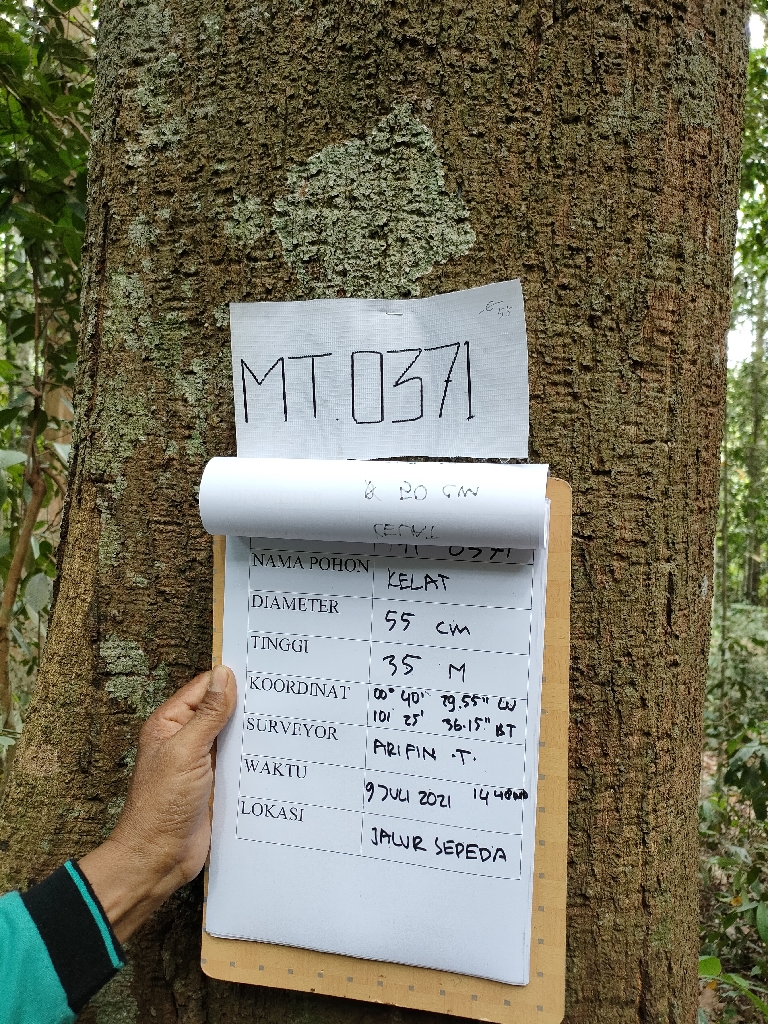 MT.0371
& 20 CM
MT 0371
NAMA POHON KELAT
DIAMETER 55 cm
TINGGI 35 M
KOORDINAT 00° 40' 29.55" LU
101' 25' 36.15" BT
SURVEYOR ARIFIN .T.
WAKTU 9 JULI 2021
LOKASI JALUR SEPEDA